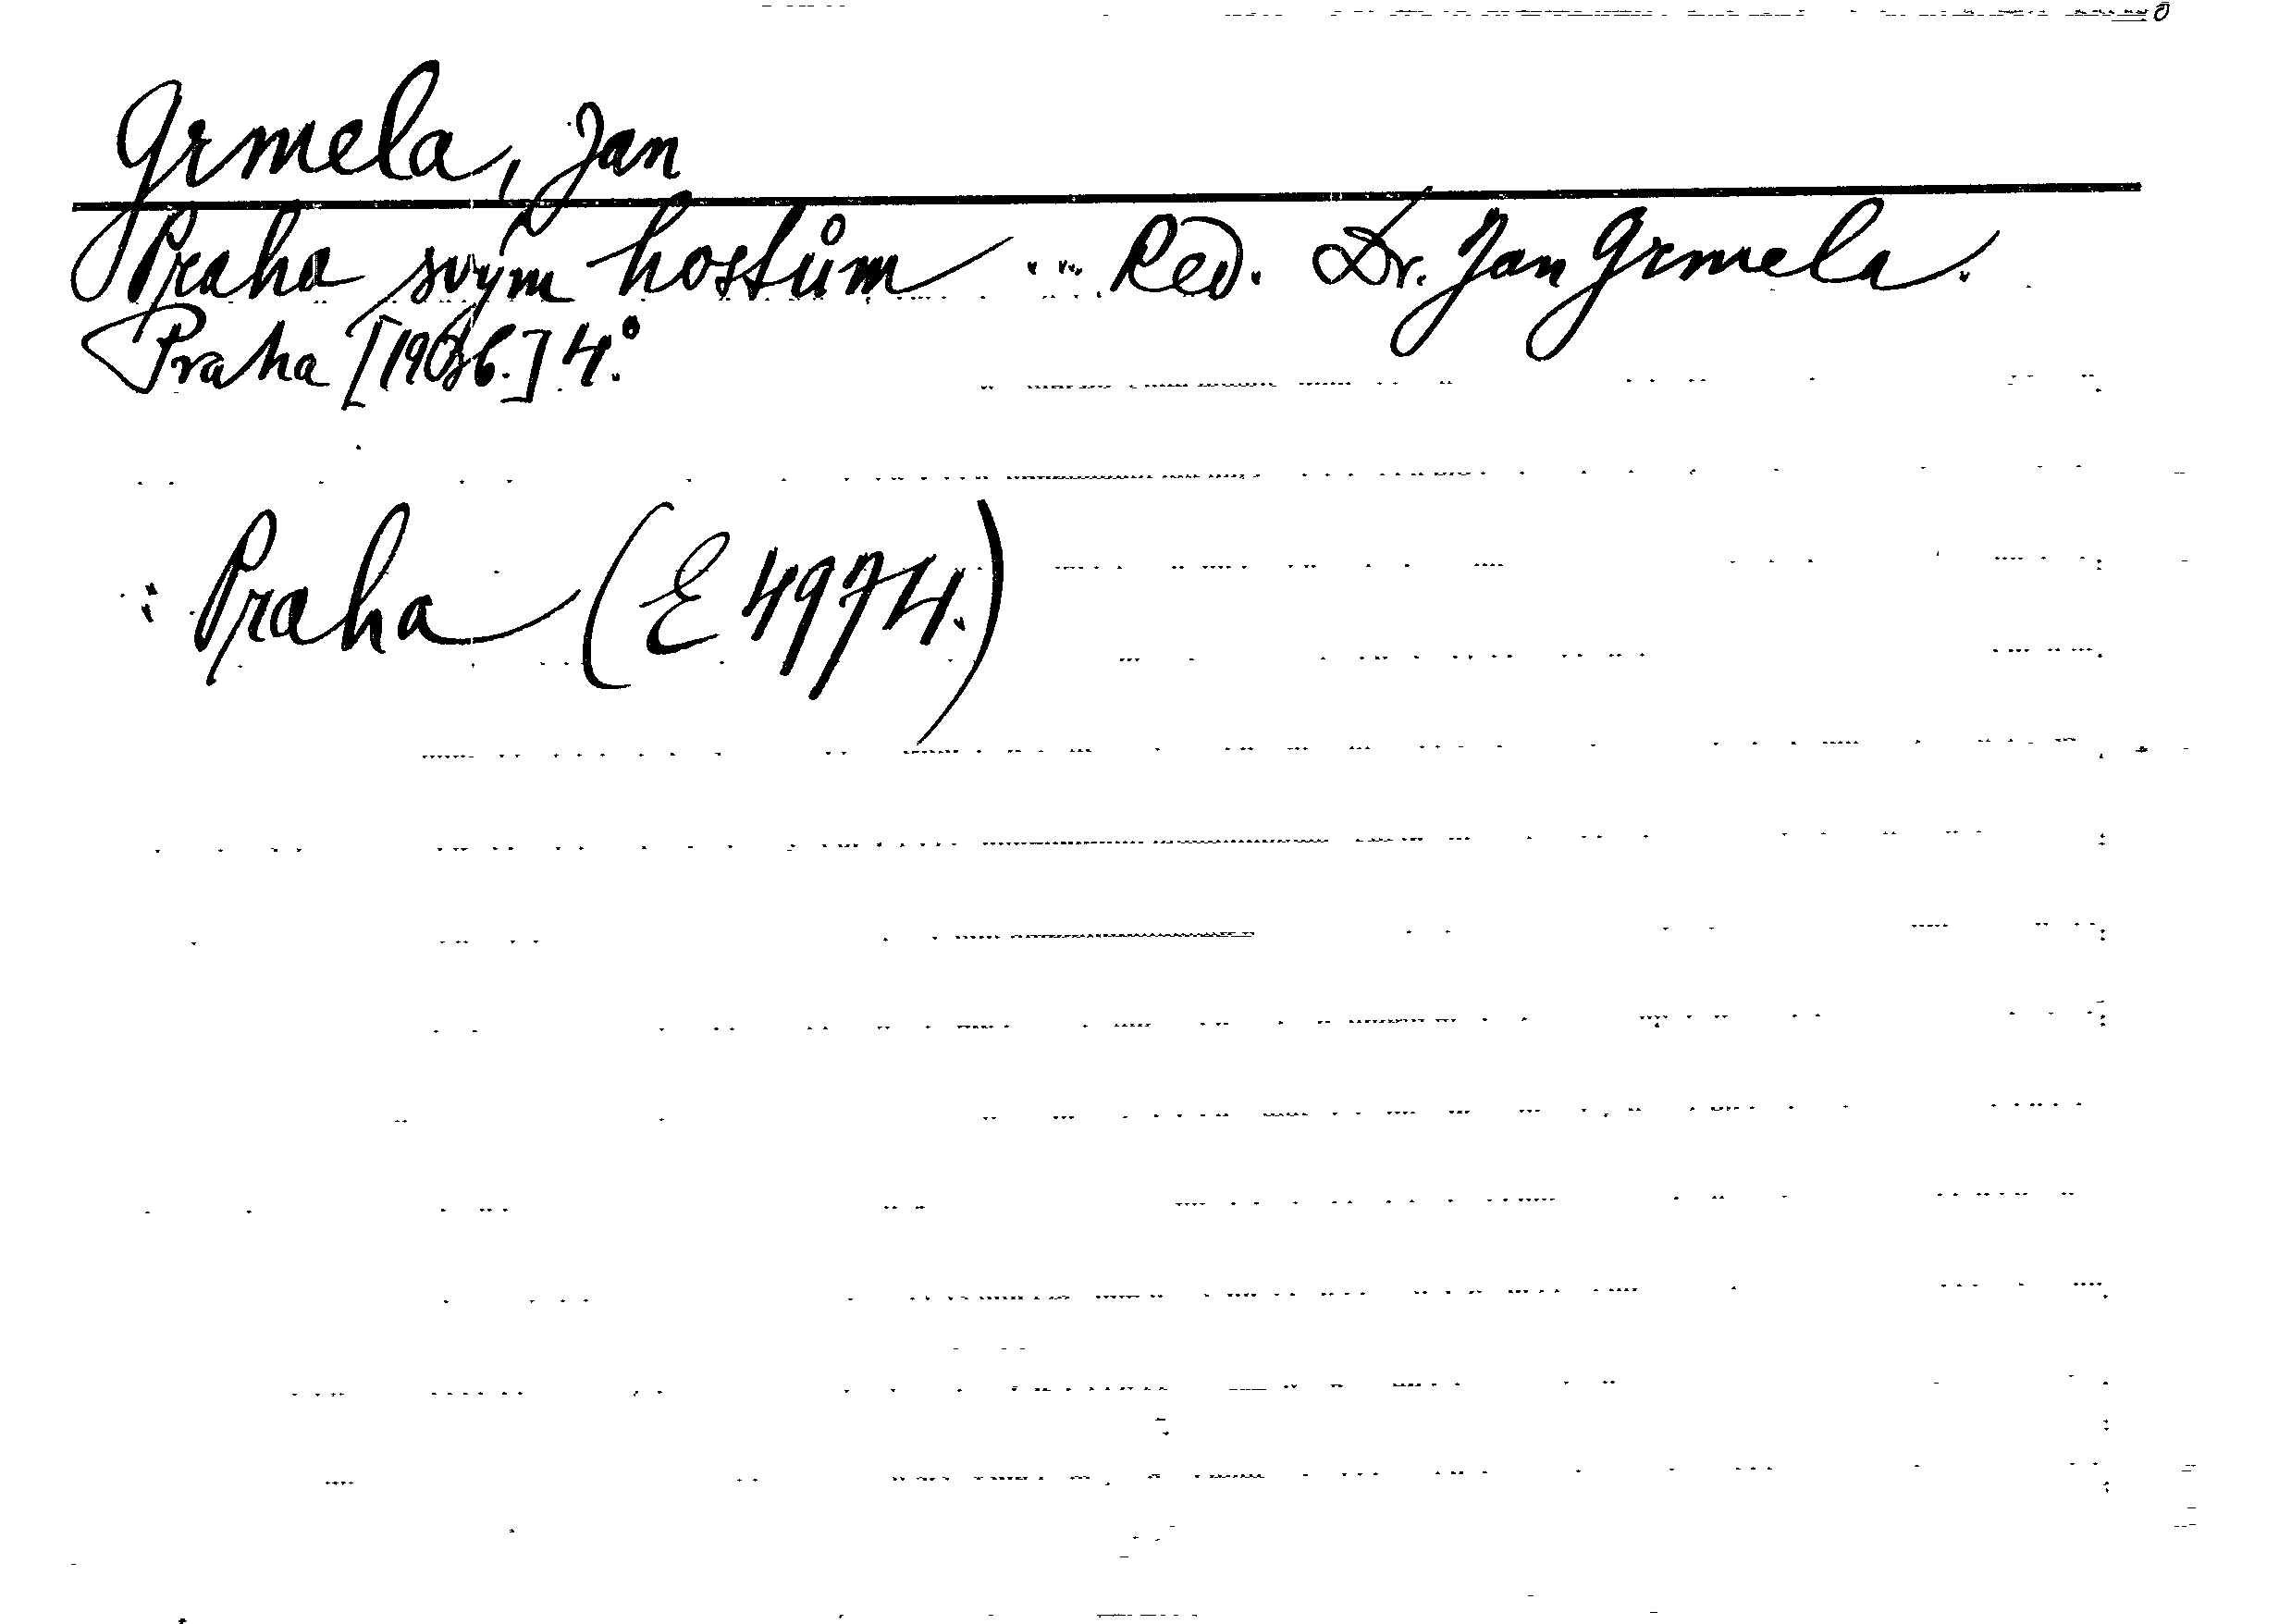 Grmela, Jan
Praha svým hostům ... Red. Dr. Jan Grmela.
Praha [1936.] 4°.
: Praha (E 4974.)